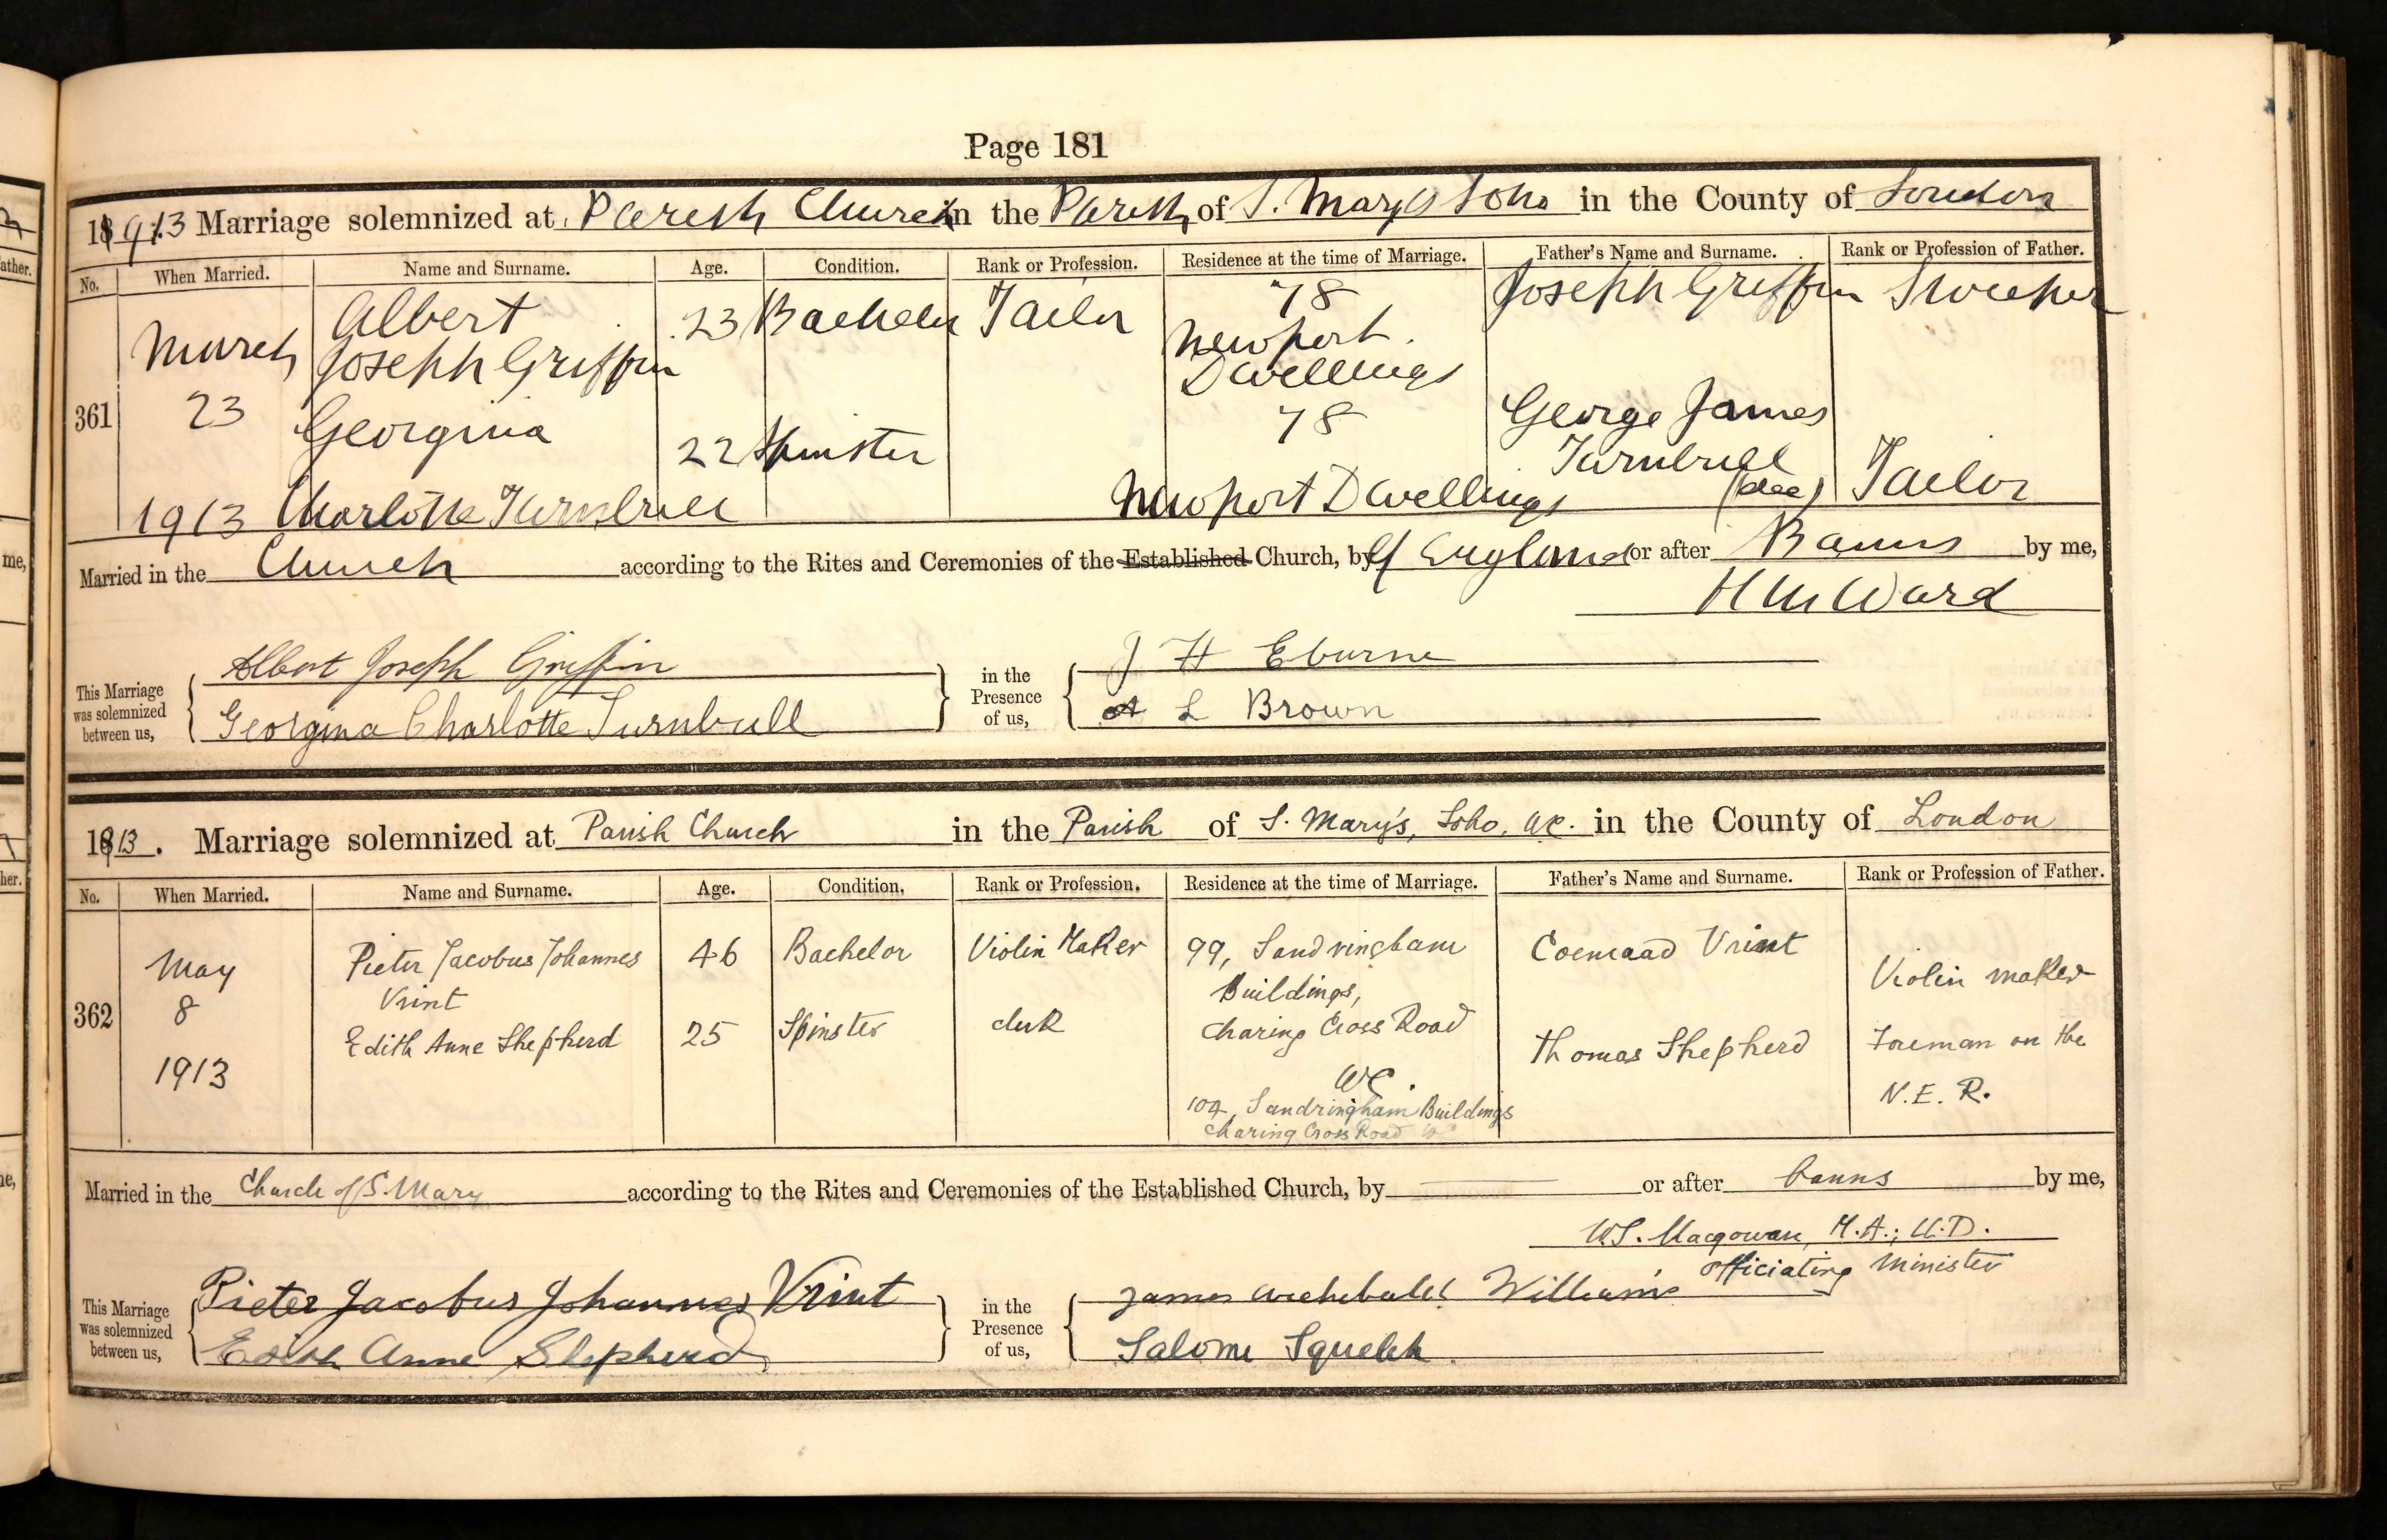 Page 181
1913 Marriage solemnized at Parish Church in the Parish of S. Mary's Soho in the County of London
No. When Married. Name and Surname. Age. Condition. Rank or Profession. Residence at the time of Marriage. Father's Name and Surname. Rank or Profession of Father.
361
March
23
1913
Albert
Joseph Griffin
23 Bachelor Tailor
78
Newport
Dwellings
Joseph Griffin
Georgina
Charlotte Turnbull
22 Spinster
78
Newport Dwellings
George James
Turnbull
(dec)
Tailor
Married in the Church according to the Rites and Ceremonies of the Established Church, by of England or after Banns by me,
H M Ward
This Marriage
was solemnized
between us,
Albert Joseph Griffin
Georgina Charlotte Turnbull
in the
Presence
of us,
J H Eburne
A L Brown
1913. Marriage solemnized at Parish Church in the Parish of S. Mary's, Soho, W.C. in the County of London
No. When Married. Name and Surname. Age. Condition. Rank or Profession. Residence at the time of Marriage. Father's Name and Surname. Rank or Profession of Father.
362
May
8
1913
Pieter Jacobus Johannes
Vrint
46 Bachelor Violin Maker
99, Sandringham
Buildings,
Charing Cross Road
W.C.
Coenraad Vrint
Violin maker
Edith Anne Shepherd
25 Spinster clerk
104, Sandringham Buildings
Charing Cross Road WC
Thomas Shepherd
Foreman on the
N.E.R.
Married in the Church of S. Mary according to the Rites and Ceremonies of the Established Church, by or after banns by me,
W.S. Macgowan, M.A.; LL.D.
officiating Minister
This Marriage
was solemnized
between us,
Pieter Jacobus Johannes Vrint
Edith Anne Shepherd
in the
Presence
of us,
James Archibald Williams
Salome Squelch